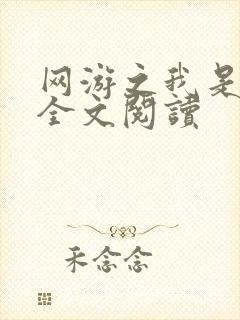 网游之我是
全文閱讀
禾念念